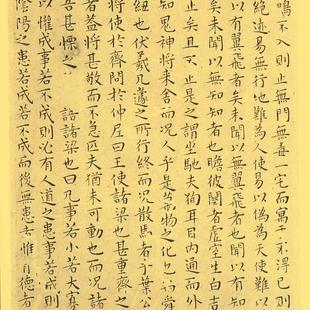 鳴不入則止無門無毒一宅而寓于不得已則
絕迹易無行地難為人使易以偽為天使難以
以有翼飛者矣未聞以無翼飛者也聞以有知
矣未聞以無知知者也瞻彼闋者虛室生白吉
止矣且不止是之謂坐馳夫徇耳目內通而外
知鬼神將來舍而況人乎是萬物之化也禹舜
紐也伏羲几蘧之所行終而況散焉者乎葉公
將使於齊問於仲尼曰王使諸梁也甚重齊之
者蓋將甚敬而不急匹夫猶未可動也而況諸
吾甚慄之 語諸梁也曰凡事若小若大寡
以懽成事若不成則必有人道之患事若成則
陰陽之患若成若不成而後無患者惟有德者